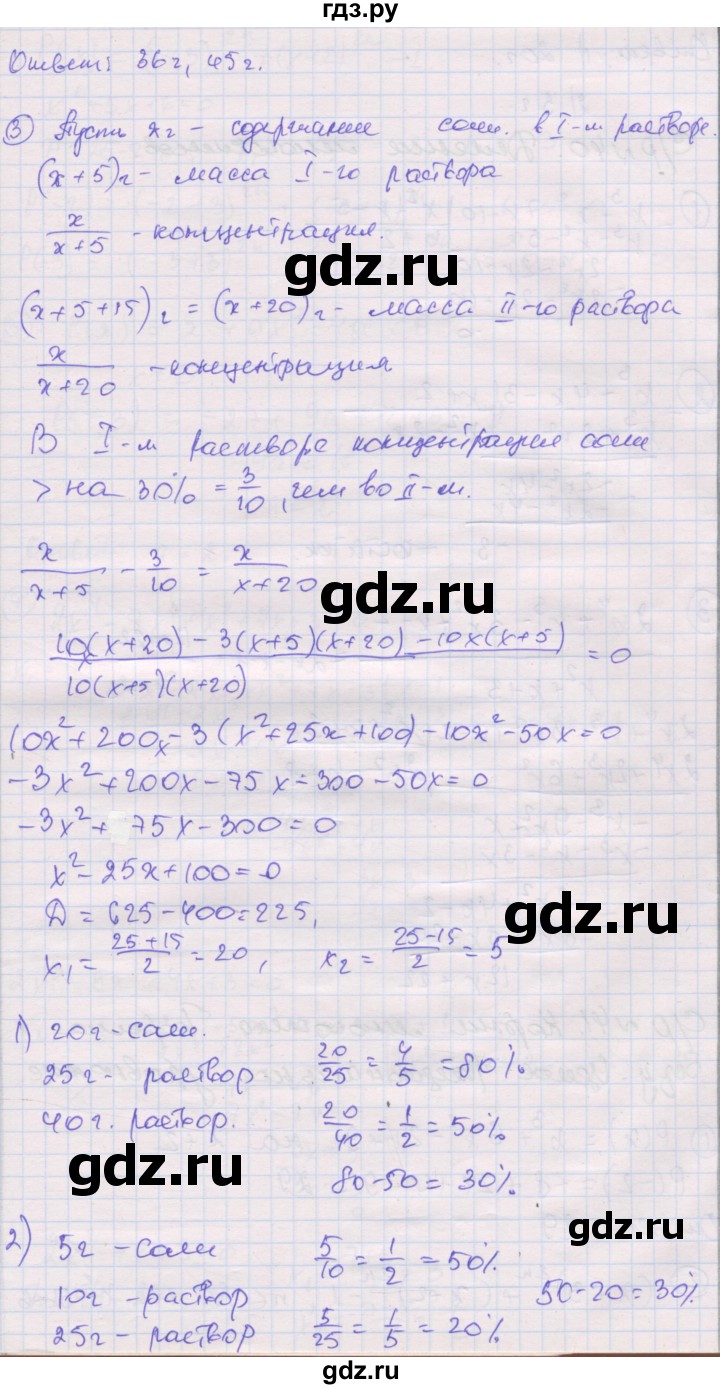 гдз.ру
Ответ: 36г, 45г.
③ Пусть xг – содержание соли в I-м растворе.
(x+5)г – масса I-го раствора
x/(x+5) – концентрация.
gdz.ru
(x+5+15)г = (x+20)г – масса II-го раствора
x/(x+20) – концентрация
В I-м растворе концентрация соли
> на 30% = 3/10, чем во II-м.
x/(x+5) - 3/10 = x/(x+20)
gdz.ru
(10(x+20) - 3(x+5)(x+20) - 10x(x+5))/(10(x+5)(x+20)) = 0
10x² + 200x - 3(x² + 25x + 100) - 10x² - 50x = 0
-3x² + 200x - 75x - 300 - 50x = 0
-3x² + 75x - 300 = 0
gdz.ru
x² - 25x + 100 = 0
gdz.ru
Д = 625 - 400 = 225,
x₁ = (25+15)/2 = 20, x₂ = (25-15)/2 = 5
1) 20г - соли.
25г - раствор 20/25 = 4/5 = 80%.
40г. раствор. 20/40 = 1/2 = 50%
gdz.ru
80-50 = 30%.
gdz.ru
2) 5г - соли 5/10 = 1/2 = 50%
10г - раствор 50-20 = 30%
25г - раствор 5/25 = 1/5 = 20%
gdz.ru